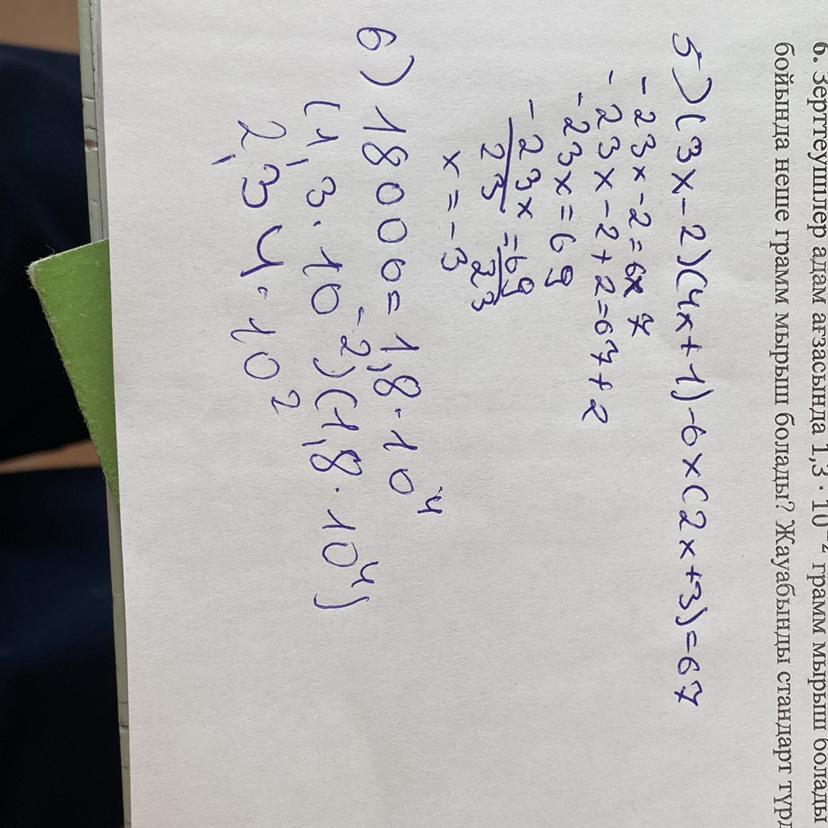 6. Зерттеушілер адам ағзасында 1,3 · 10⁻² грамм мырыш болады
бойында неше грамм мырыш болады? Жауабыңды стандарт түрд
5) (3x-2)(4x+1)-6x(2x+3)=67
-23x-2=67
-23x-2+2=67+2
-23x=69
-23x/23=69/23
x=-3
6) 18000=1,8·10⁴
(1,3·10⁻²)(1,8·10⁴)
2,34·10²